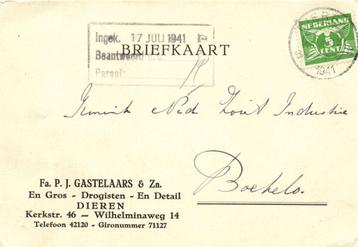 Ingek. 17 JULI 1941
Beantwoord
Paraaf:
BRIEFKAART
NEDERLAND
5
CENT
1941
Ned Zout Industrie
Boekelo.
Fa. P. J. GASTELAARS & Zn.
En Gros - Drogisten - En Detail
DIEREN
Kerkstr. 46 — Wilhelminaweg 14
Telefoon 42120 - Gironummer 71127